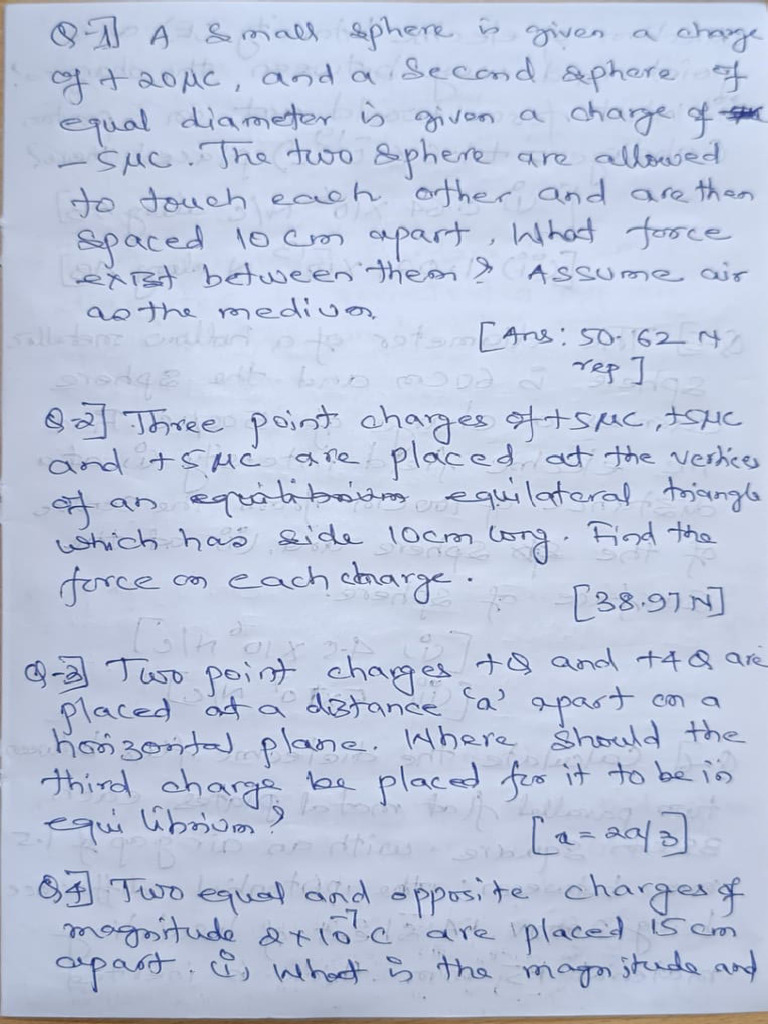 Q-1] A Small sphere is given a charge
of +20μC, and a Second sphere of
equal diameter is given a charge of
-5μC. The two sphere are allowed
to touch each other and are then
spaced 10 cm apart. What force
exist between them? Assume air
as the medium.
[Ans: 50.62 N
rep]
Q-2] Three point charges of +5μC, +5μC
and +5μC are placed at the vertices
of an equilibrium equilateral triangle
which has side 10cm long. Find the
force on each charge.
[38.97N]
Q-3] Two point charges +Q and +4Q are
placed at a distance 'a' apart on a
horizontal plane. Where should the
third charge be placed for it to be in
equilibrium?
[x = 2a/3]
Q4] Two equal and opposite charges of
magnitude 2×10⁻⁷C are placed 15cm
apart. (i) What is the magnitude and